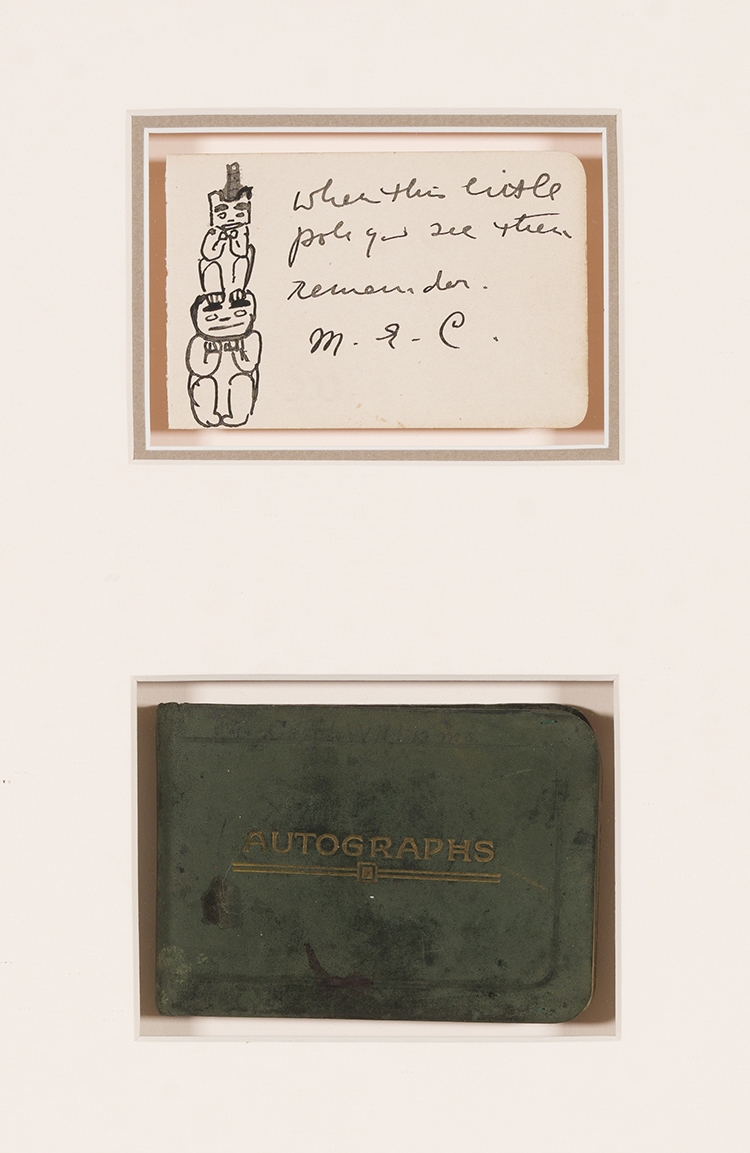 when this little
pole you see then
remember.
M. E. C.
AUTOGRAPHS